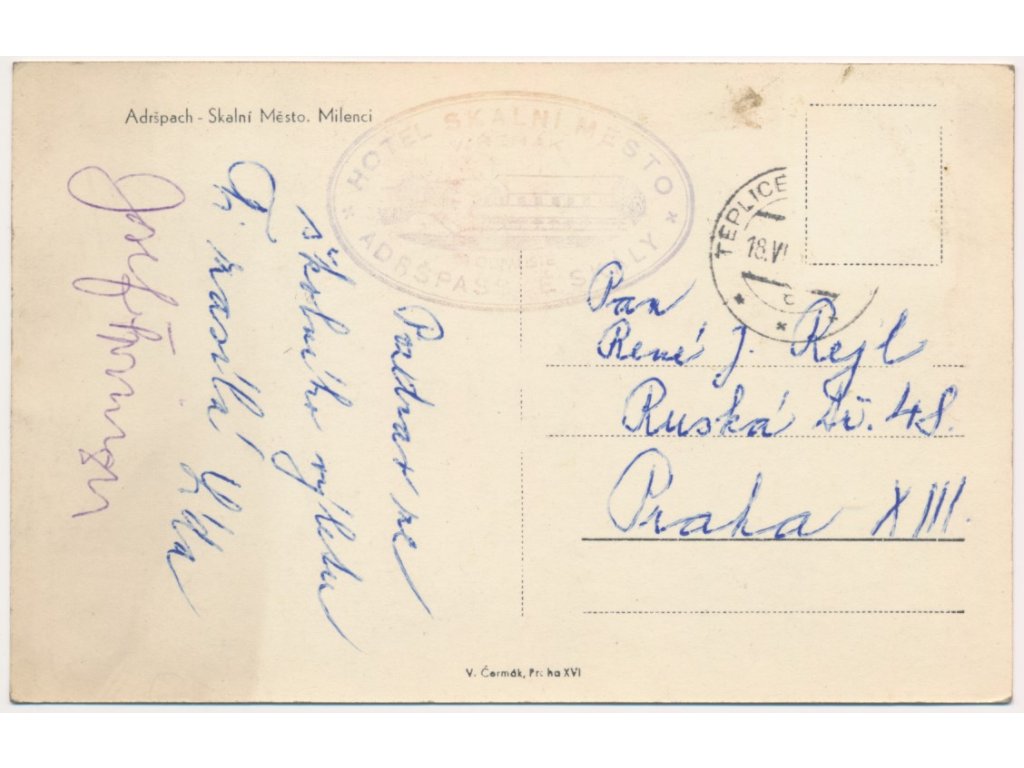 Adršpach - Skalní Město. Milenci
HOTEL SKALNÍ MĚSTO
ADRŠPAŠSKÉ SKÁLY
TEPLICE
18.VI
Pozdrav ze
školního výletu
Ti zasílá Lída
Josef
Pan
René J. Rejl
Ruská tř. 48.
Praha XIII.
V. Čermák, Praha XVI